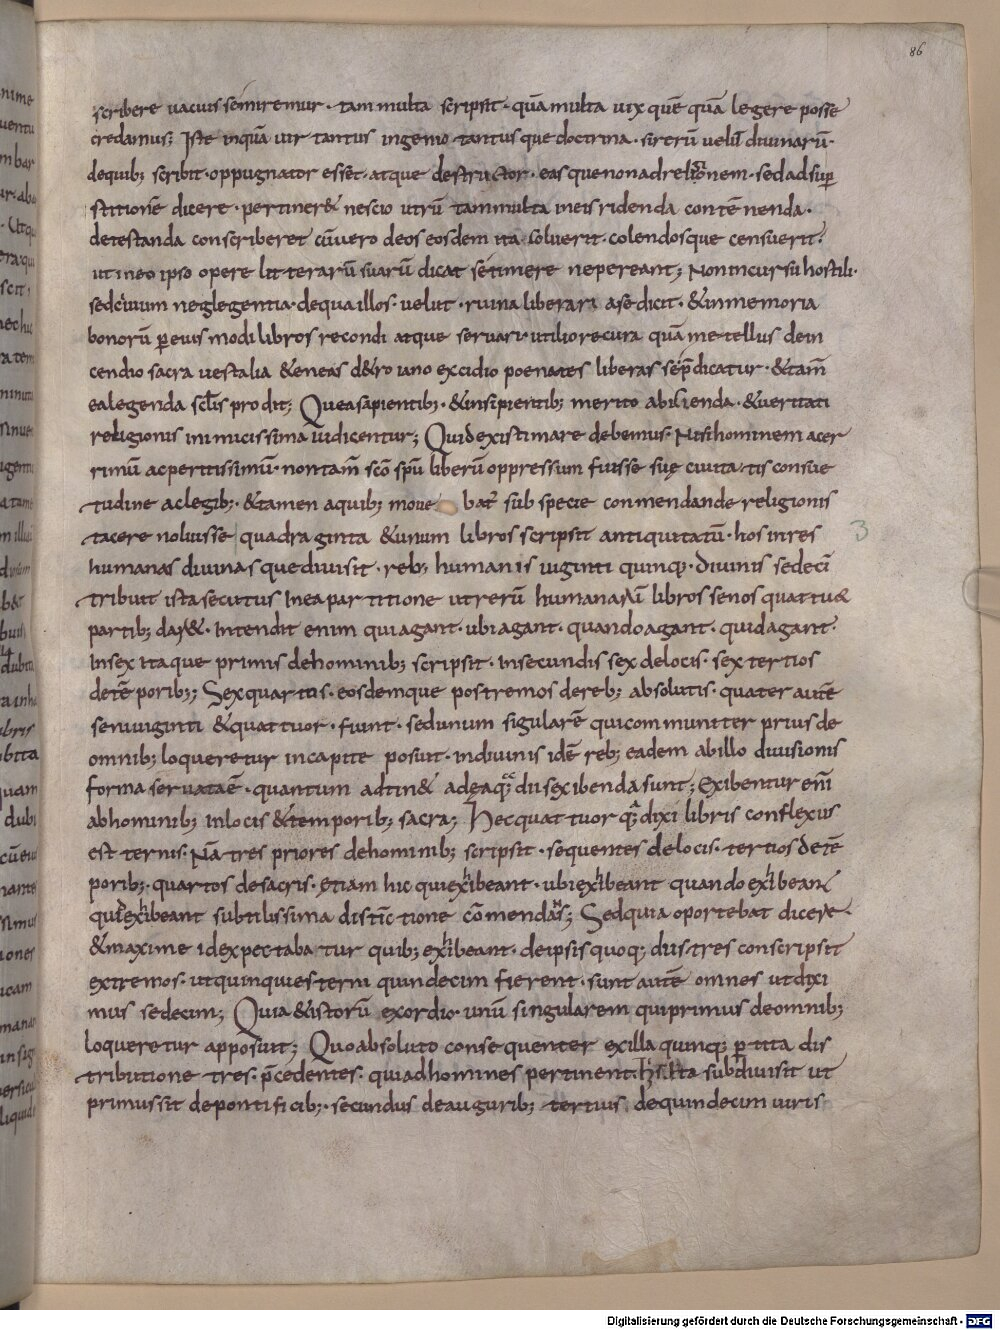 86
scribere uacuis semiremur· tam multa scripsit· quā multa uix quē quā legere posse
credamus; Iste inquā uir tantus ingenio tantusque doctrina· si rerū uelut diuinarū·
de quib; scribit· oppugnator esset· atque destructor· eas que non ad religionem· sed ad sup
stitionē dicere· pertiner& nescio utrū tam multa in eis ridenda contēnenda·
detestanda conscriberet cū uero deos eosdem ita coluerit· colendosque censuerit·
ut in eo ipso opere litterarū suarū dicat se timere ne pereant; Non incursu hostili·
sed ciuium neglegentia· de qua illos· uelut· ruina liberari a se dicit· & in memoria
bonorū p eius modi libros recondi atque seruari utiliore cura quā metellus de in
cendio sacra uestalia & eneas d& roiano excidio poenates liberas sep̄dicatur· & tam̄
ea legenda sclis prodit; Que a sapientib; & insipientib; merito abicienda· & ueritati
religionis inimicissima iudicentur; Quid existimare debemus· Nisi hominem acer
rimū ac peritissimū· non tam̄ sc̄o sp̄u liberū oppressum fuisse suę ciuitatis consue
tudine ac legib;· & tamen a quib; moue bat᷑ sub specie conmendande religionis
tacere noluisse quadraginta & unum libros scripsit antiquitatū· hos in res
humanas diuinasque diuisit· reb; humanis uiginti quinq;· Diuinis sedecī
tribuit ista secutus in ea partitione ut rerū humanarū libros senos quattuor
partib; dar&· Intendit enim qui agant· ubi agant· quando agant· quid agant·
In sex itaque primis de hominib; scripsit· In secundis sex de locis· sex tertios
de tēporib;; Sex quartus· eosdemque postremos de reb; absolutis· quater autē
seni uiginti & quattuor· fiunt· sed unum singularē qui communiter prius de
omnib; loqueretur in capite posuit· in diuinis idē reb; eadem ab illo diuisionis
forma seruata ē· quantum adtin& ad ea quę diis exibenda sunt; Exibentur enī
ab hominib; in locis & temporib; sacra; Hec quattuor quę dixi libris conflexus
est ternis· Nā tres priores de hominib; scripsit· sequentes de locis· tertios de tē
porib;· quartos de sacris· etiam hic qui exhibeant· ubi exhibeant quando exhibeant
quid exhibeant subtilissima distinctione cōmendans; Sed quia oportebat dicere·
& maxime id expectabatur quib; exhibeant· de ipsis quoq; diis tres conscripsit
extremos· ut quinquies terni quindecim fierent· sunt autē omnes ut dixi
mus sedecim; Quia & istorū exordio· unū singularem qui primus de omnib;
loqueretur apposuit; Quo absoluto consequenter ex illa quinq; p̄tita dis
tributione tres· p̄cedentes· qui ad homines pertinent· ita subdiuisit ut
primus sit de pontificib;· secundus de augurib; tertius de quindecim uiris
3
Digitalisierung gefördert durch die Deutsche Forschungsgemeinschaft - DFG